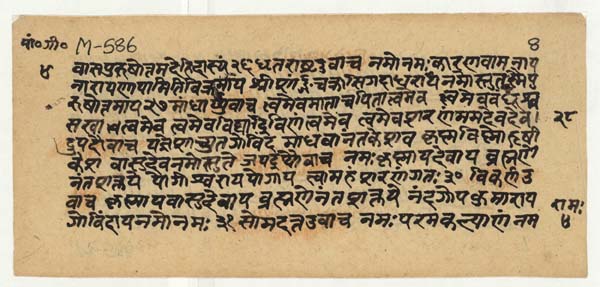 पां०गी० M-586 ४
४
वासपुरुषोत्तमदेहिदास्यं २६ धृतराष्ट्रउवाच नमोनमःकारणवामनाय
नारायणायामितविक्रमाय श्रीशार्ङ्गचक्रासिगदाधराय नमोस्तुतस्मैपु
रुषोत्तमाय २७ गांधार्युवाच त्वमेवमाताचपितात्वमेव त्वमेवबंधुश्च
सखात्वमेव त्वमेवविद्याद्रविणंत्वमेव त्वमेवशरणंममदेवदेव। २८
द्रुपदउवाच यज्ञेशाच्युतगोविंद माधवानंतकेशव कृष्णविष्णोहृषी
केश वासुदेवनमोस्तुते जयद्रथोवाच नमःकृष्णायदेवाय ब्रह्मणे
नंतशक्तये योगेश्वराययोगाय त्वामहंशरणंगतः ३० विकर्णउ
वाच कृष्णायवासुदेवाय ब्रह्मणेनंतशक्तये नंदगोपकुमाराय
गोविंदायनमोनमः ३१ सोमदत्तउवाच नमःपरमकल्याणं नम
रामः
४